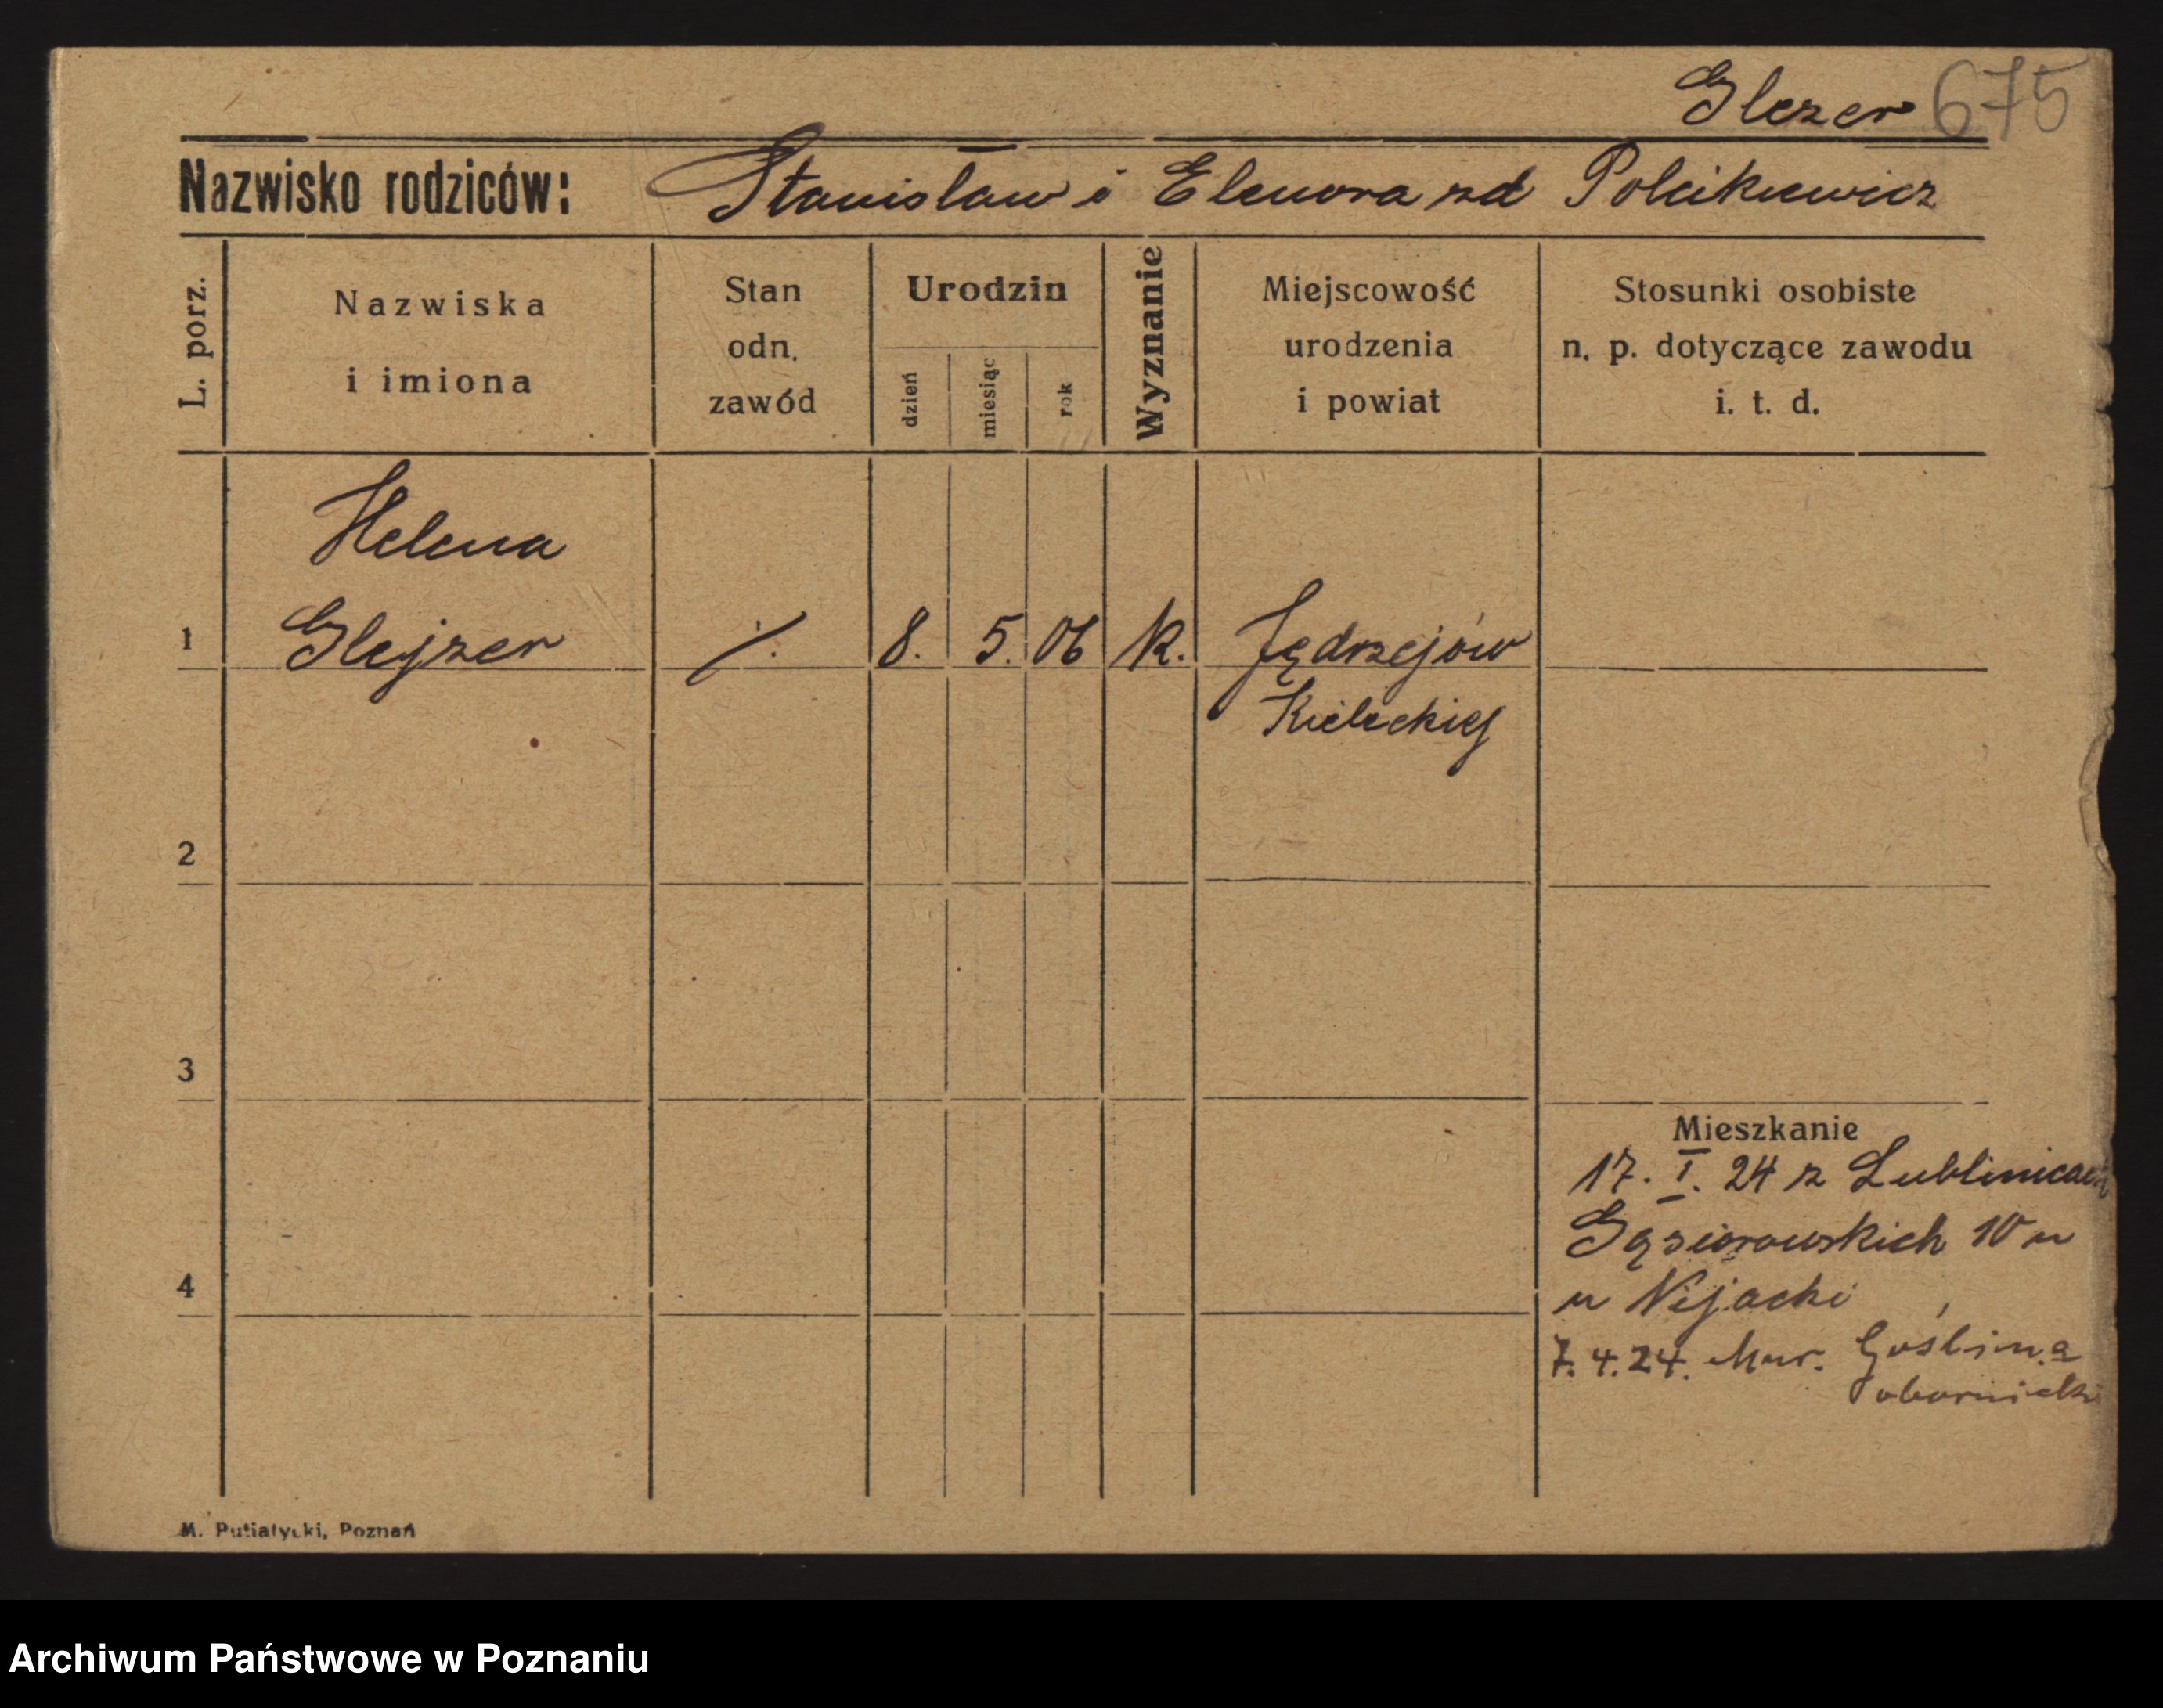 Glezer 675
Nazwisko rodziców: Stanisław i Elenora zd Polcikiewicz
L. porz.
Nazwiska
i imiona
Stan
odn.
zawód
Urodzin
dzień
miesiąc
rok
Wyznanie
Miejscowość
urodzenia
i powiat
Stosunki osobiste
n. p. dotyczące zawodu
i. t. d.
Helena
1 Glejzer ·/. 8. 5. 06 K. Jędrzejów
Kieleckiej
2
3
Mieszkanie
17. I. 24 z
Gąsiorowskich 10
4
u
7.4.24. Mur. Goślina
obornicki
M. Putiatycki, Poznań
Archiwum Państwowe w Poznaniu